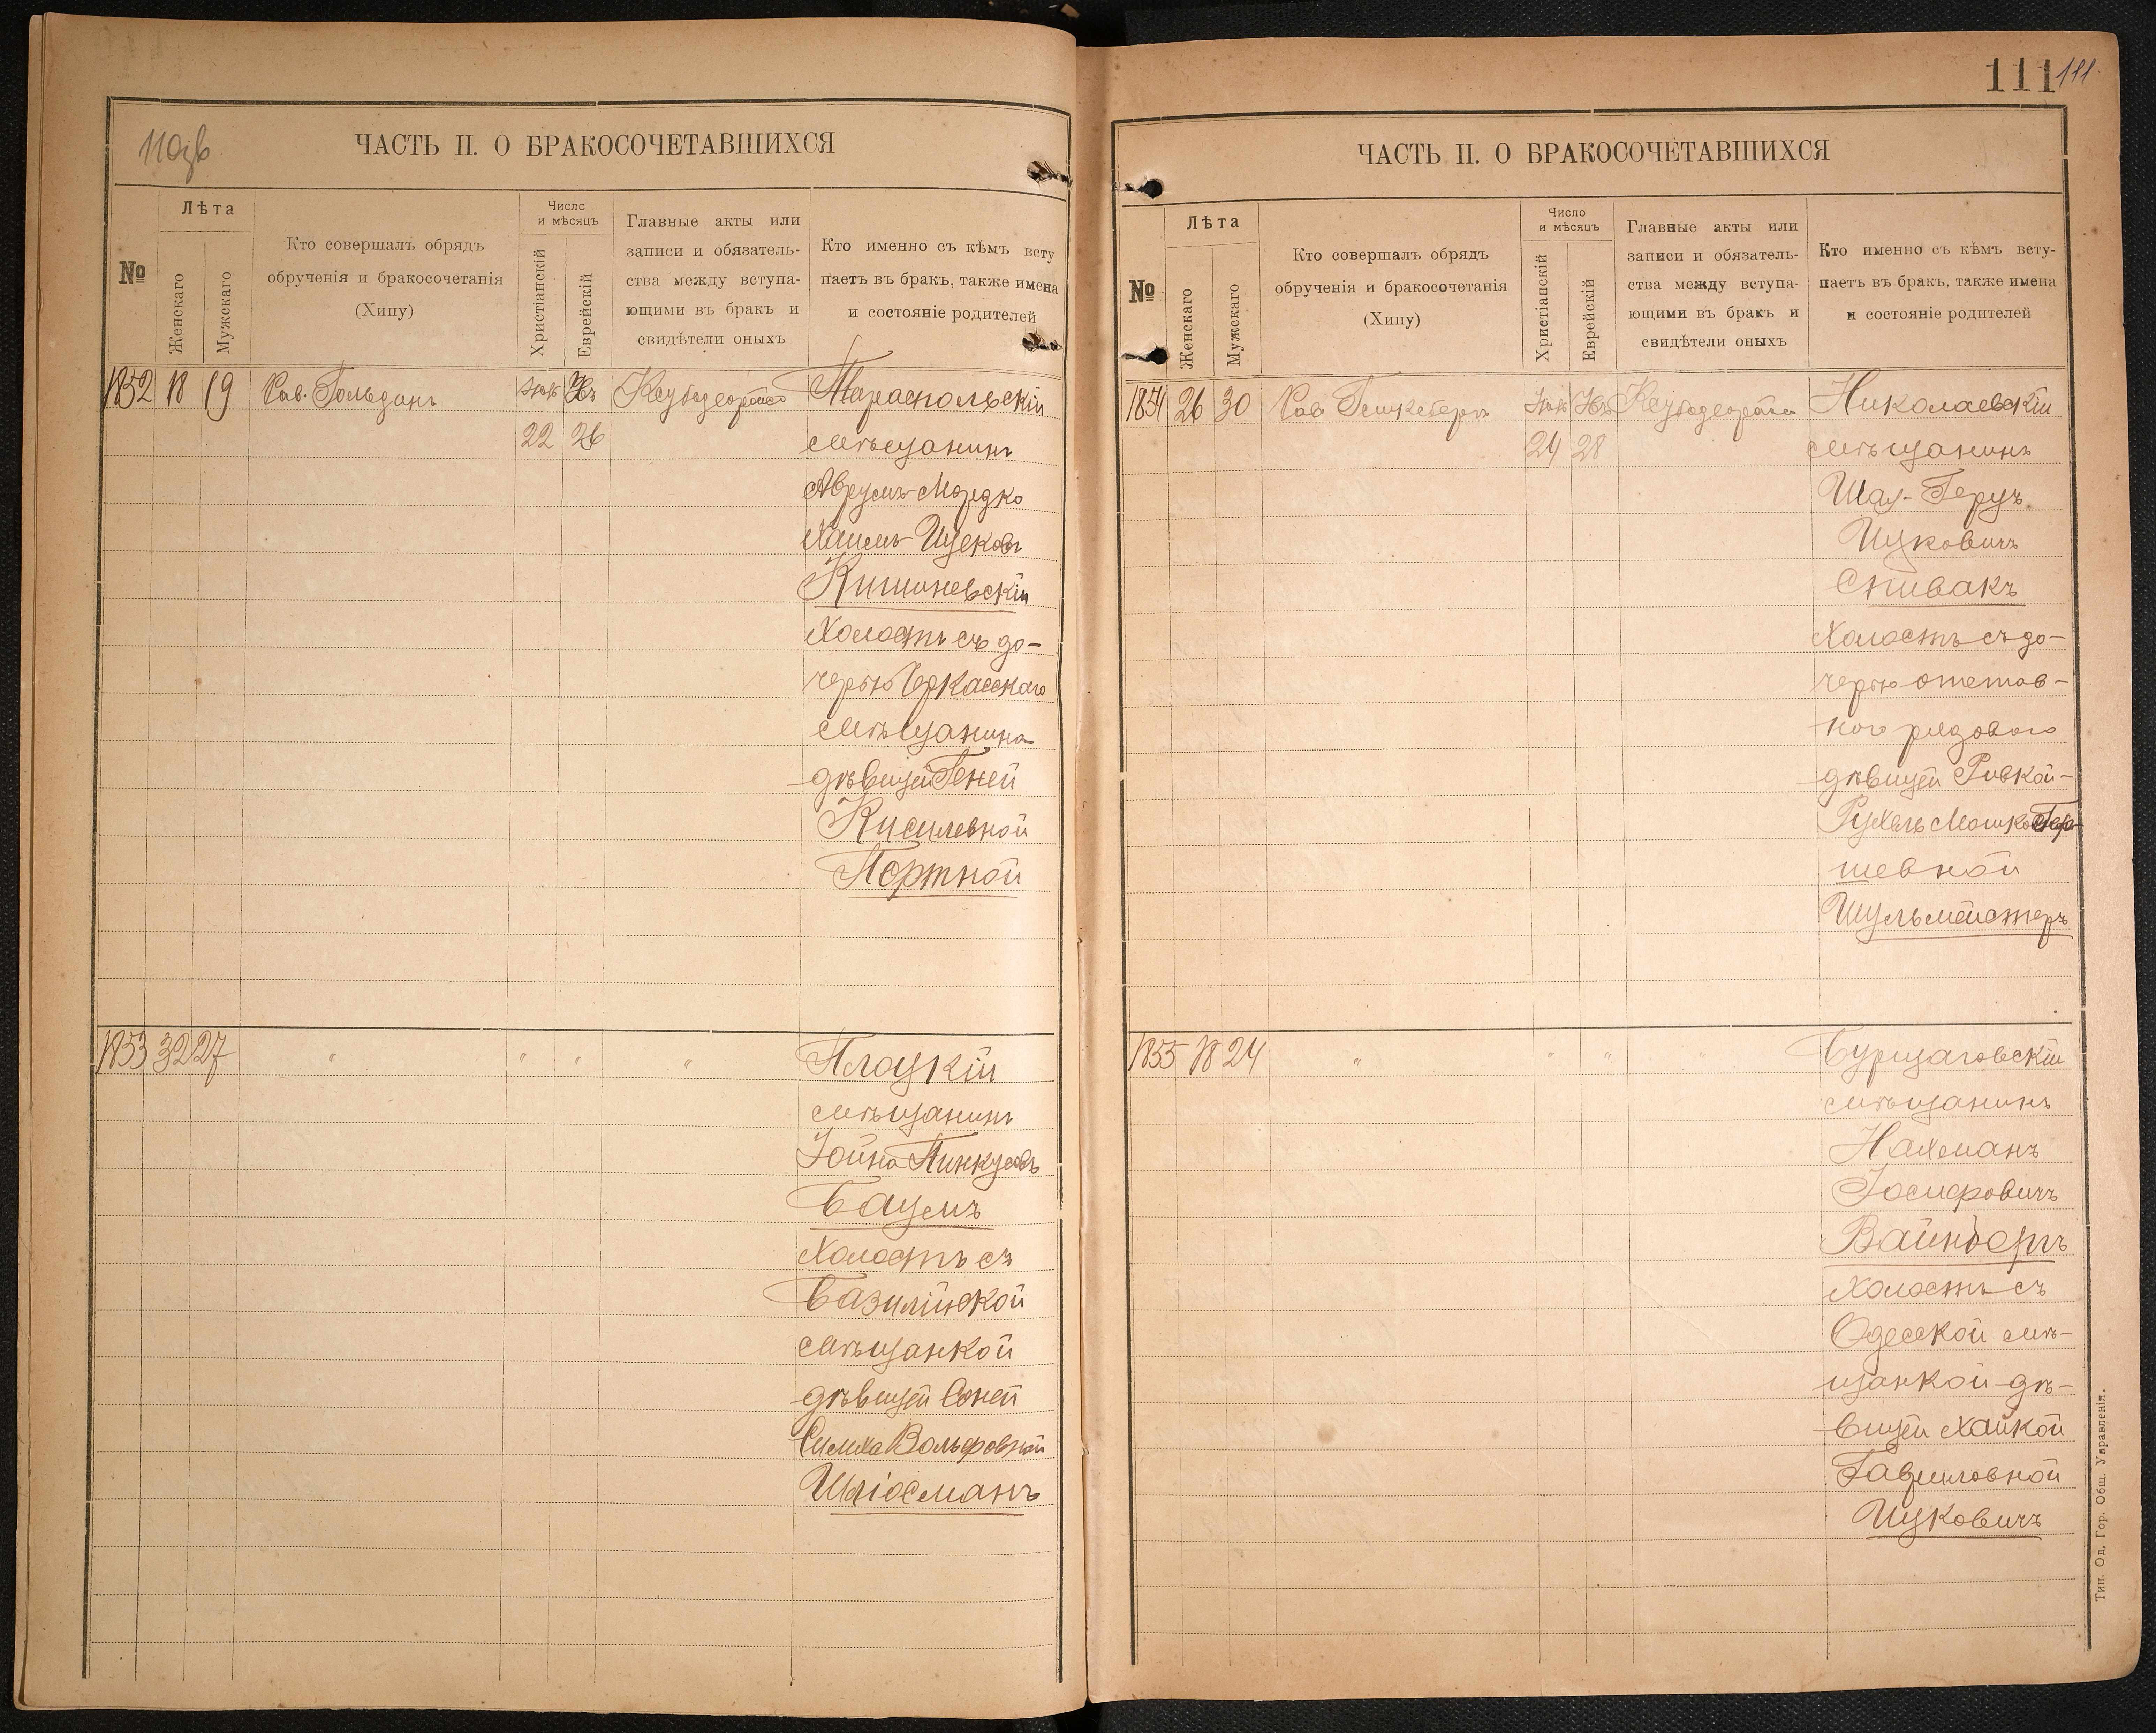 110об
ЧАСТЬ II. О БРАКОСОЧЕТАВШИХСЯ
№
Лѣта
Женскаго
Мужескаго
Кто совершалъ обрядъ
обрученія и бракосочетанія
(Хипу)
Число
и мѣсяцъ
Христіанскій
Еврейскій
Главные акты или
записи и обязатель-
ства между вступа-
ющими въ бракъ и
свидѣтели оныхъ
Кто именно съ кѣмъ всту
паетъ въ бракъ, также имена
и состояніе родителей
1852 18 19 Рав. Гольдинъ
22 26
Тираспольскій
мѣщанинъ
Аврумъ-Мордко
Хаимъ-Ицковъ
Кишиневскій
Холостъ съ до-
черью Черкасскаго
мѣщанина
дѣвицей Геней
Кисилевной
Портной
1853 32 27 " " " "
Плоцкій
мѣщанинъ
Іойна Пинкусовъ
Баумъ
Холостъ съ
Базилійской
мѣщанкой
дѣвицей Соней
Симха Вольфовной
Шліосманъ
111 111
ЧАСТЬ II. О БРАКОСОЧЕТАВШИХСЯ
№
Лѣта
Женскаго
Мужскаго
Кто совершалъ обрядъ
обрученія и бракосочетанія
(Хипу)
Число
и мѣсяцъ
Христіанскій
Еврейскій
Главные акты или
записи и обязатель-
ства между вступа-
ющими въ бракъ и
свидѣтели оныхъ
Кто именно съ кѣмъ всту-
паетъ въ бракъ, также имена
и состояніе родителей
1854 26 30 Рав
24 28
Николаевскій
мѣщанинъ
Шая-Герцъ
Ицковичъ
Спивакъ
Холостъ съ до-
черью отстав-
ного рядового
дѣвицей Ривкой-
Рухель Мошко Гер-
шевной
Шульмейстеръ
1855 18 24 " " " "
Бурщаговскій
мѣщанинъ
Нахманъ
Іосифовичъ
Вайнбергъ
Холостъ съ
Одесской мѣ-
щанкой дѣ-
вицей Хайкой
Гавриловной
Ицковичъ
Тип. Од. Гор. Общ. Управленія.